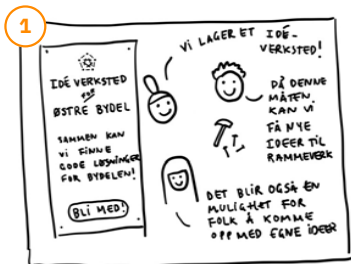 1
IDÉ VERKSTED
FOR
ØSTRE BYDEL
SAMMEN KAN
VI FINNE
GODE LØSNINGER
FOR BYDELEN!
BLI MED!
VI LAGER ET IDÉ-
VERKSTED!
PÅ DENNE
MÅTEN
KAN VI
FÅ NYE
IDEER TIL
RAMMEVERK
DET BLIR OGSÅ EN
MULIGHET FOR
FOLK Å KOMME
OPP MED EGNE IDEER